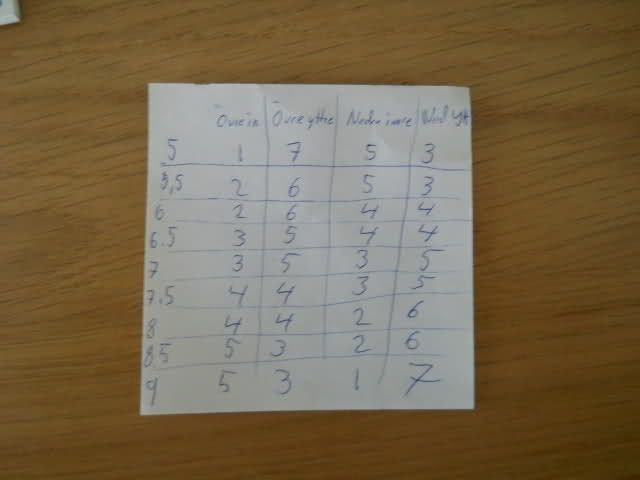 Övre in Övre yttre Nedre inre Ned yt
5 1 7 5 3
5,5 2 6 5 3
6 2 6 4 4
6.5 3 5 4 4
7 3 5 3 5
7.5 4 4 3 5
8 4 4 2 6
8.5 5 3 2 6
9 5 3 1 7